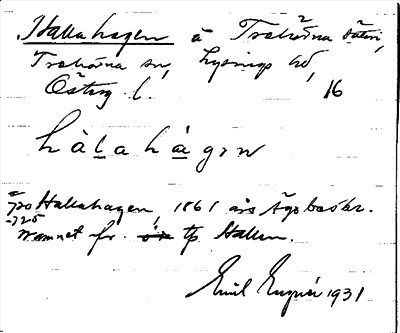 Hallahagen å Trehörna säteri,
Trehörna sn, Lysings hd,
Östg l. 16
hàlahágen
Hallahagen, 1861 års Ägobeskr.
-725
namnet fr. tp Hallen.
Emil 1931